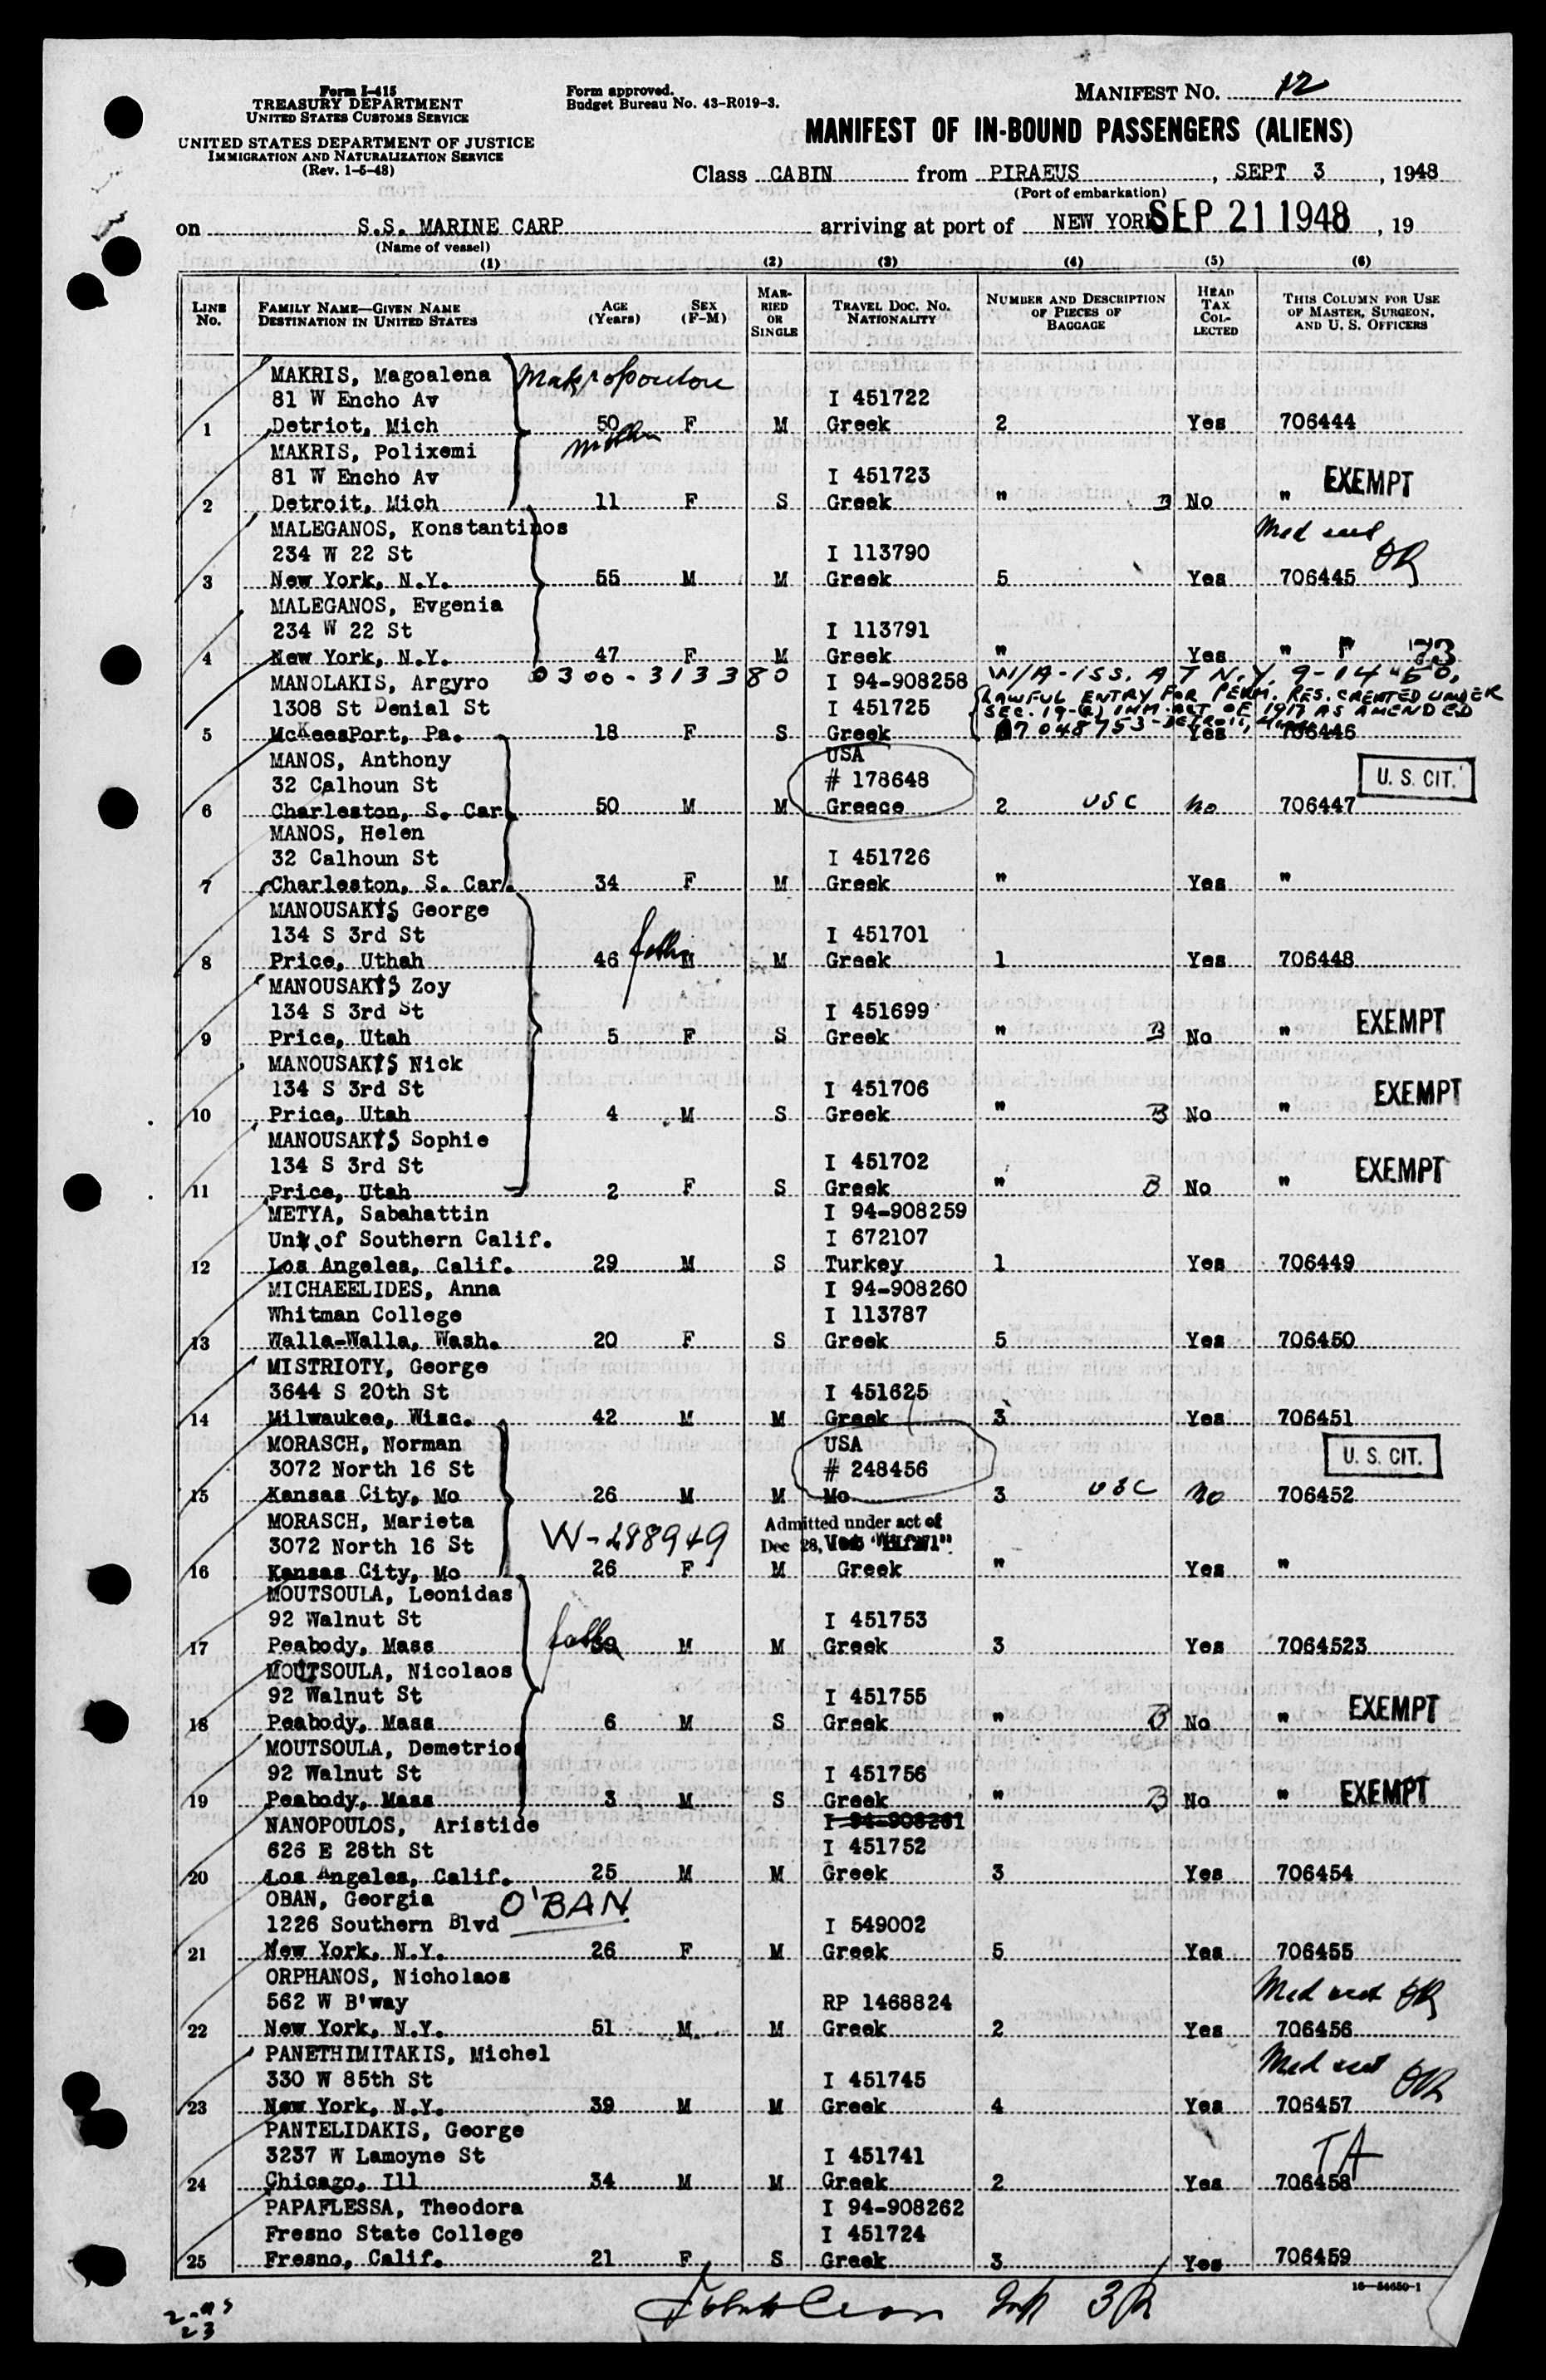 Form I-415
TREASURY DEPARTMENT
UNITED STATES CUSTOMS SERVICE
UNITED STATES DEPARTMENT OF JUSTICE
IMMIGRATION AND NATURALIZATION SERVICE
(Rev. 1-5-48)
Form approved.
Budget Bureau No. 43-R019-3.
MANIFEST NO. 12
MANIFEST OF IN-BOUND PASSENGERS (ALIENS)
Class CABIN from PIRAEUS, SEPT 3, 1948
(Port of embarkation)
on S.S. MARINE CARP arriving at port of NEW YORK SEP 21 1948, 19
(Name of vessel)
(1) (2) (3) (4) (5) (6)
LINE No. FAMILY NAME—GIVEN NAME DESTINATION IN UNITED STATES AGE (Years) SEX (F-M) MARRIED OR SINGLE TRAVEL DOC. NO. NATIONALITY NUMBER AND DESCRIPTION OF PIECES OF BAGGAGE HEAD TAX COLLECTED THIS COLUMN FOR USE OF MASTER, SURGEON, AND U. S. OFFICERS
MAKRIS, Magoalena Makropoulou
81 W Encho Av I 451722
1 Detriot, Mich 50 F M Greek 2 Yes 706444
MAKRIS, Polixemi mother
81 W Encho Av I 451723 EXEMPT
2 Detroit, Mich 11 F S Greek " B No "
MALEGANOS, Konstantinos Med cert
234 W 22 St I 113790 OR
3 New York, N.Y. 55 M M Greek 5 Yes 706445
MALEGANOS, Evgenia
234 W 22 St I 113791
4 New York, N.Y. 47 F M Greek " Yes " " 73
0300-313380 W/A-ISS. AT N.Y. 9-14-60,
MANOLAKIS, Argyro I 94-908258 LAWFUL ENTRY FOR PERM. RES. CREATED UNDER
1308 St Denial St I 451725 SEC. 19-(c) IMM. ACT OF 1917 AS AMENDED
5 McKeesPort, Pa. 18 F S Greek A7048753-Detroit, Yes 706446
MANOS, Anthony USA
32 Calhoun St # 178648 U. S. CIT.
6 Charleston, S. Car. 50 M M Greece 2 USC No 706447
MANOS, Helen
32 Calhoun St I 451726
7 Charleston, S. Car. 34 F M Greek " Yes "
MANOUSAKIS George
134 S 3rd St I 451701
8 Price, Uthah 46 father M M Greek 1 Yes 706448
MANOUSAKIS Zoy
134 S 3rd St I 451699 EXEMPT
9 Price, Utah 5 F S Greek " B No "
MANOUSAKIS Nick
134 S 3rd St I 451706 EXEMPT
10 Price, Utah 4 M S Greek " B No "
MANOUSAKIS Sophie
134 S 3rd St I 451702 EXEMPT
11 Price, Utah 2 F S Greek " B No "
METYA, Sabahattin I 94-908259
Uni of Southern Calif. I 672107
12 Los Angeles, Calif. 29 M S Turkey 1 Yes 706449
MICHAEELIDES, Anna I 94-908260
Whitman College I 113787
13 Walla-Walla, Wash. 20 F S Greek 5 Yes 706450
MISTRIOTY, George
3644 S 20th St I 451625
14 Milwaukee, Wisc. 42 M M Greek 3 Yes 706451
MORASCH, Norman USA
3072 North 16 St # 248456 U. S. CIT.
15 Kansas City, Mo 26 M M Mo 3 USC No 706452
MORASCH, Marieta W-288949 Admitted under act of
3072 North 16 St Dec 28,
16 Kansas City, Mo 26 F M Greek " Yes "
MOUTSOULA, Leonidas
92 Walnut St I 451753
17 Peabody, Mass father 39 M M Greek 3 Yes 7064523
MOUTSOULA, Nicolaos
92 Walnut St I 451755 EXEMPT
18 Peabody, Mass 6 M S Greek " B No "
MOUTSOULA, Demetrios
92 Walnut St I 451756 EXEMPT
19 Peabody, Mass 3 M S Greek " B No "
NANOPOULOS, Aristide I 94-908261
626 E 28th St I 451752
20 Los Angeles, Calif. 25 M M Greek 3 Yes 706454
OBAN, Georgia O'BAN
1226 Southern Blvd I 549002
21 New York, N.Y. 26 F M Greek 5 Yes 706455
ORPHANOS, Nicholaos Med cert OR
562 W B'way RP 1468824
22 New York, N.Y. 51 M M Greek 2 Yes 706456
PANETHIMITAKIS, Michel Med cert OR
330 W 85th St I 451745
23 New York, N.Y. 39 M M Greek 4 Yes 706457
PANTELIDAKIS, George TA
3237 W Lamoyne St I 451741
24 Chicago, Ill 34 M M Greek 2 Yes 706458
PAPAFLESSA, Theodora I 94-908262
Fresno State College I 451724
25 Fresno, Calif. 21 F S Greek 3 Yes 706459
16-54650-1